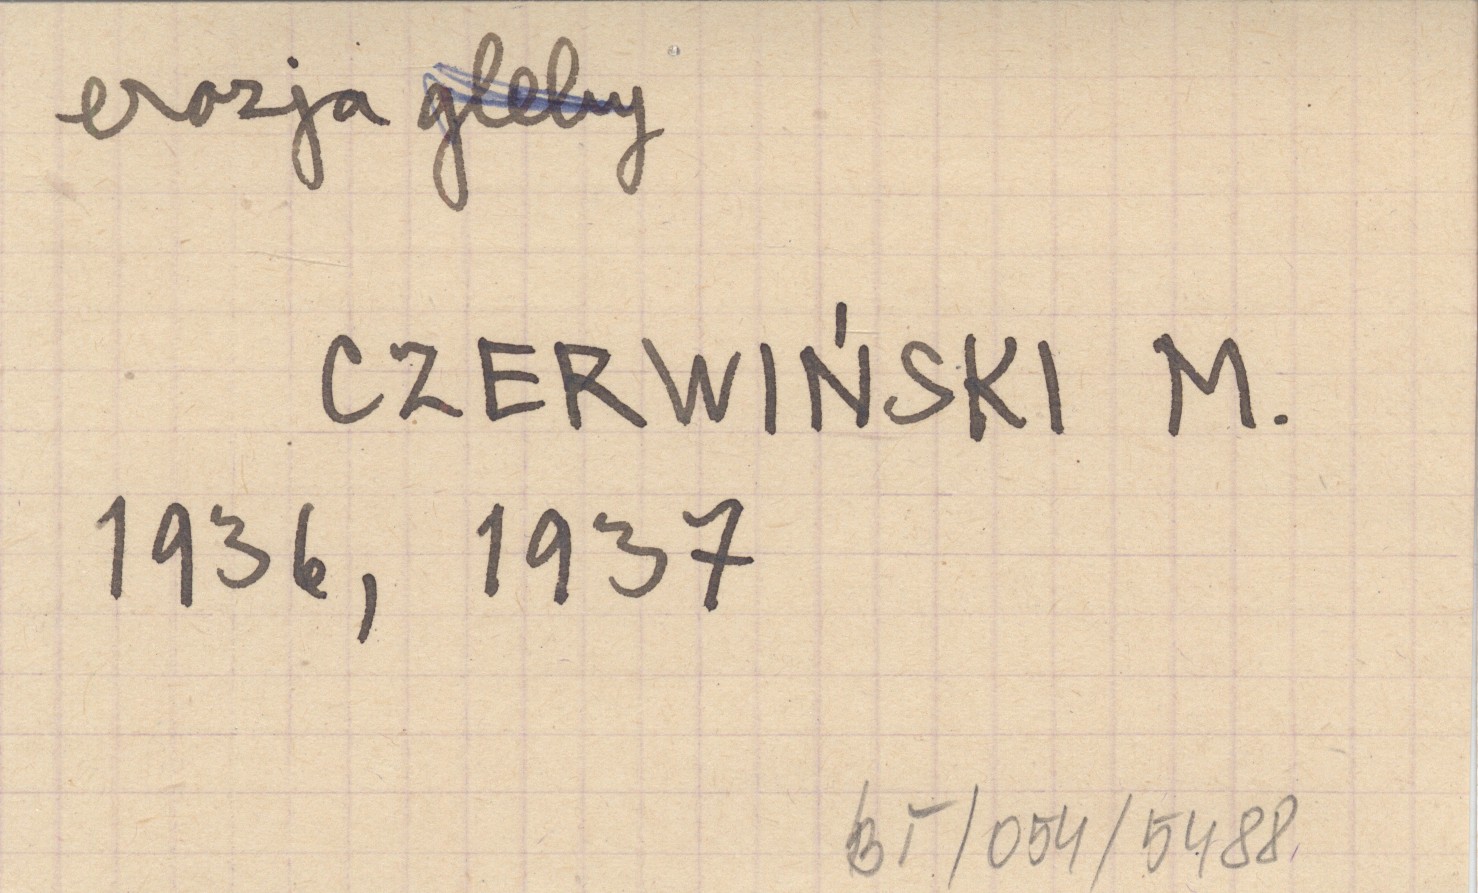 erozja gleby
CZERWIŃSKI M.
1936, 1937
BT/054/5488